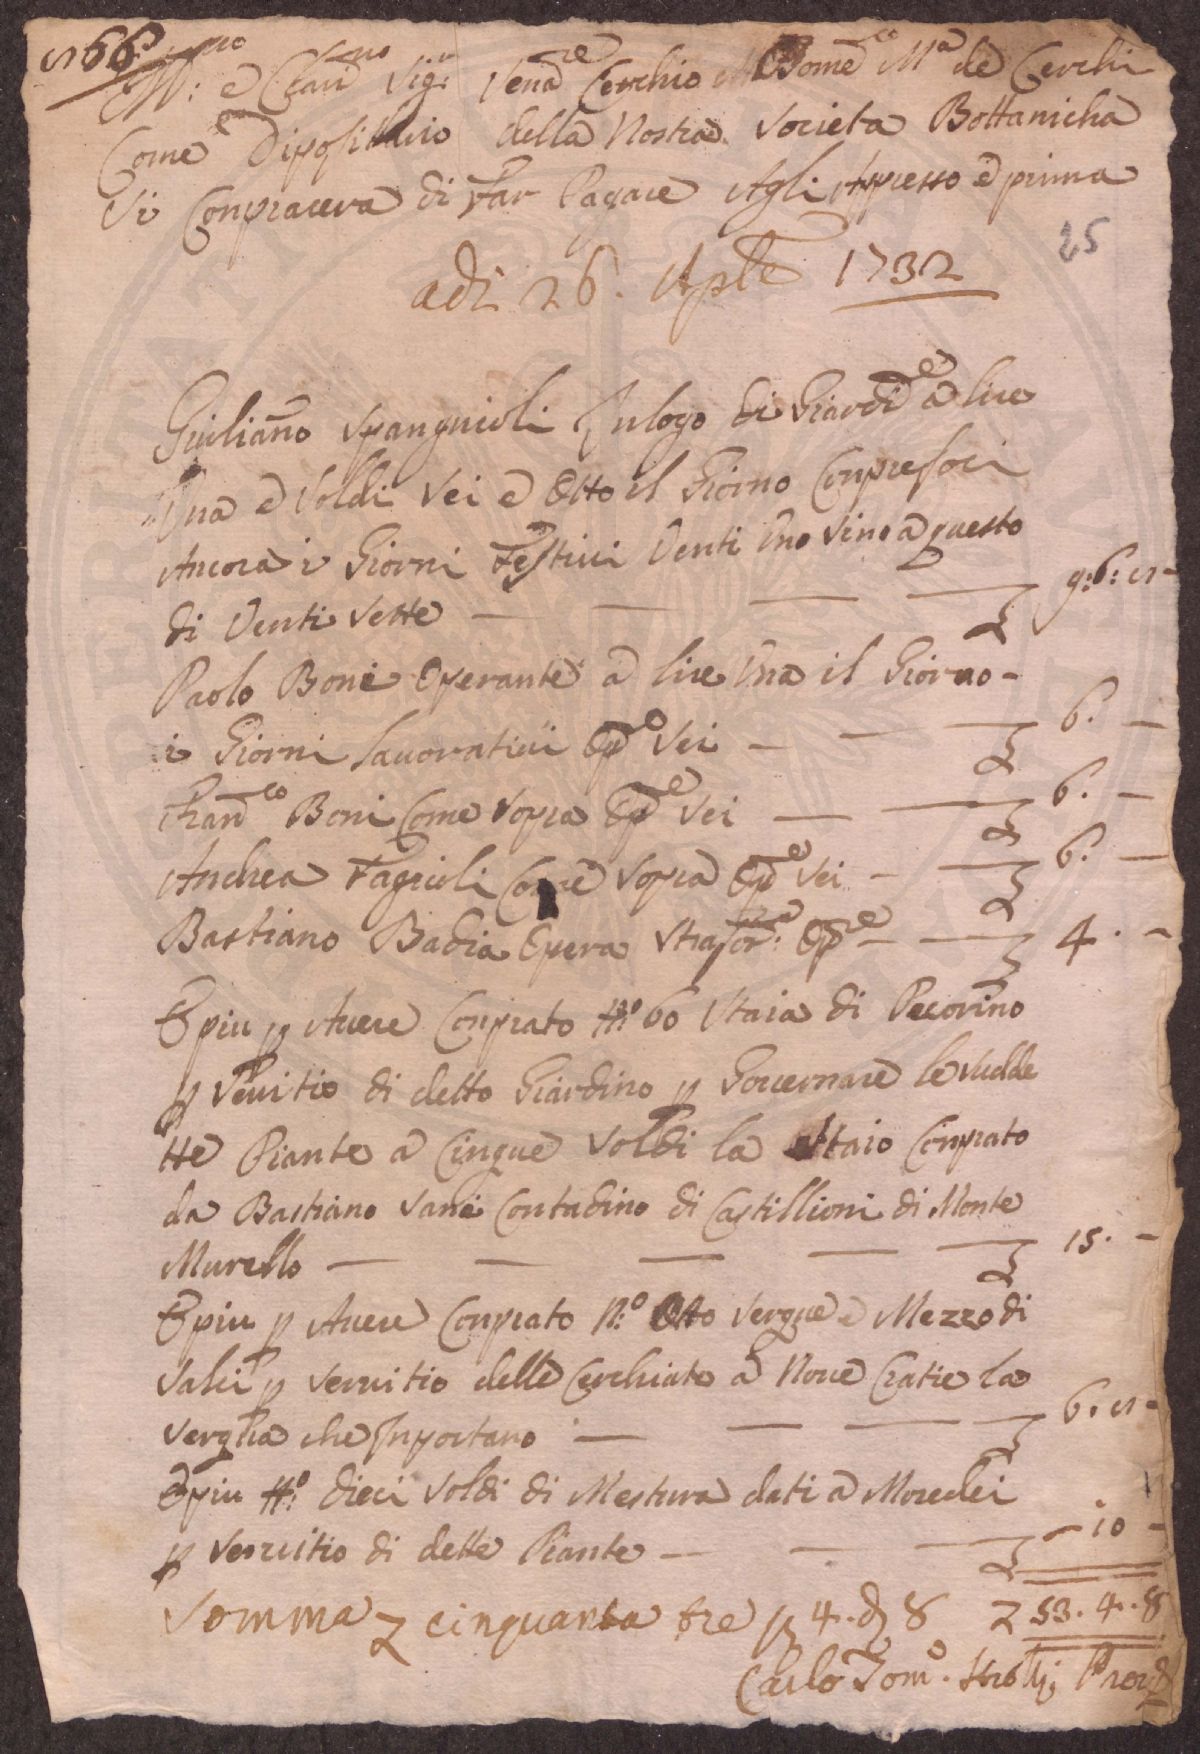 166
Ill:mo e Clar:mo Sig:r Sena:re Cerchio M: Dome:co M:a de Cerchi
Come Dipositario della Nostra Societa Bottanicha
Si Conpiacera di Far Pagare Agli Appresso e prima
25
adi 26. Aple 1732
Giuliano Spangnioli Inlogo di Giard:re a lire
Una e Soldi Sei e Otto il Giorno Conpresoci
Ancora i Giorni Festivi Venti Uno Sino a questo
di Venti Sette — — — — 9:6:
Paolo Boni Operante a lire Una il Giorno -
i Giorni lavorativi Op:e Sei — — — 6. —
Fran:co Boni Come Sopra Op:e Sei — — 6. —
Andrea Fagioli Come Sopra Op:e Sei - — 6. —
Bastiano Badia Opera Op:e — — 4. —
E piu p Avere Conprato N:o 60 Staia di Pecorino
p Servitio di detto Giardino p Governare le Sudde
tte Piante a Cinque Soldi lo Staio Conprato
da Bastiano Sani Contadino di Castillioni di Monte
Murello — — — — — 15. —
E piu p Avere Conprato N:o Otto Vergue e Mezzo di
Salci p Servitio delle Cerchiate a Nove Cratie la
Vergua che Inportano — — — — 6.
E piu N:o dieci Soldi di Mestura dati a
p Servitio di dette Piante — — — — 10 -
Somma cinquanta tre p 4. d 8 53. 4. 8
Carlo Tom:o Strozzi Prov:e